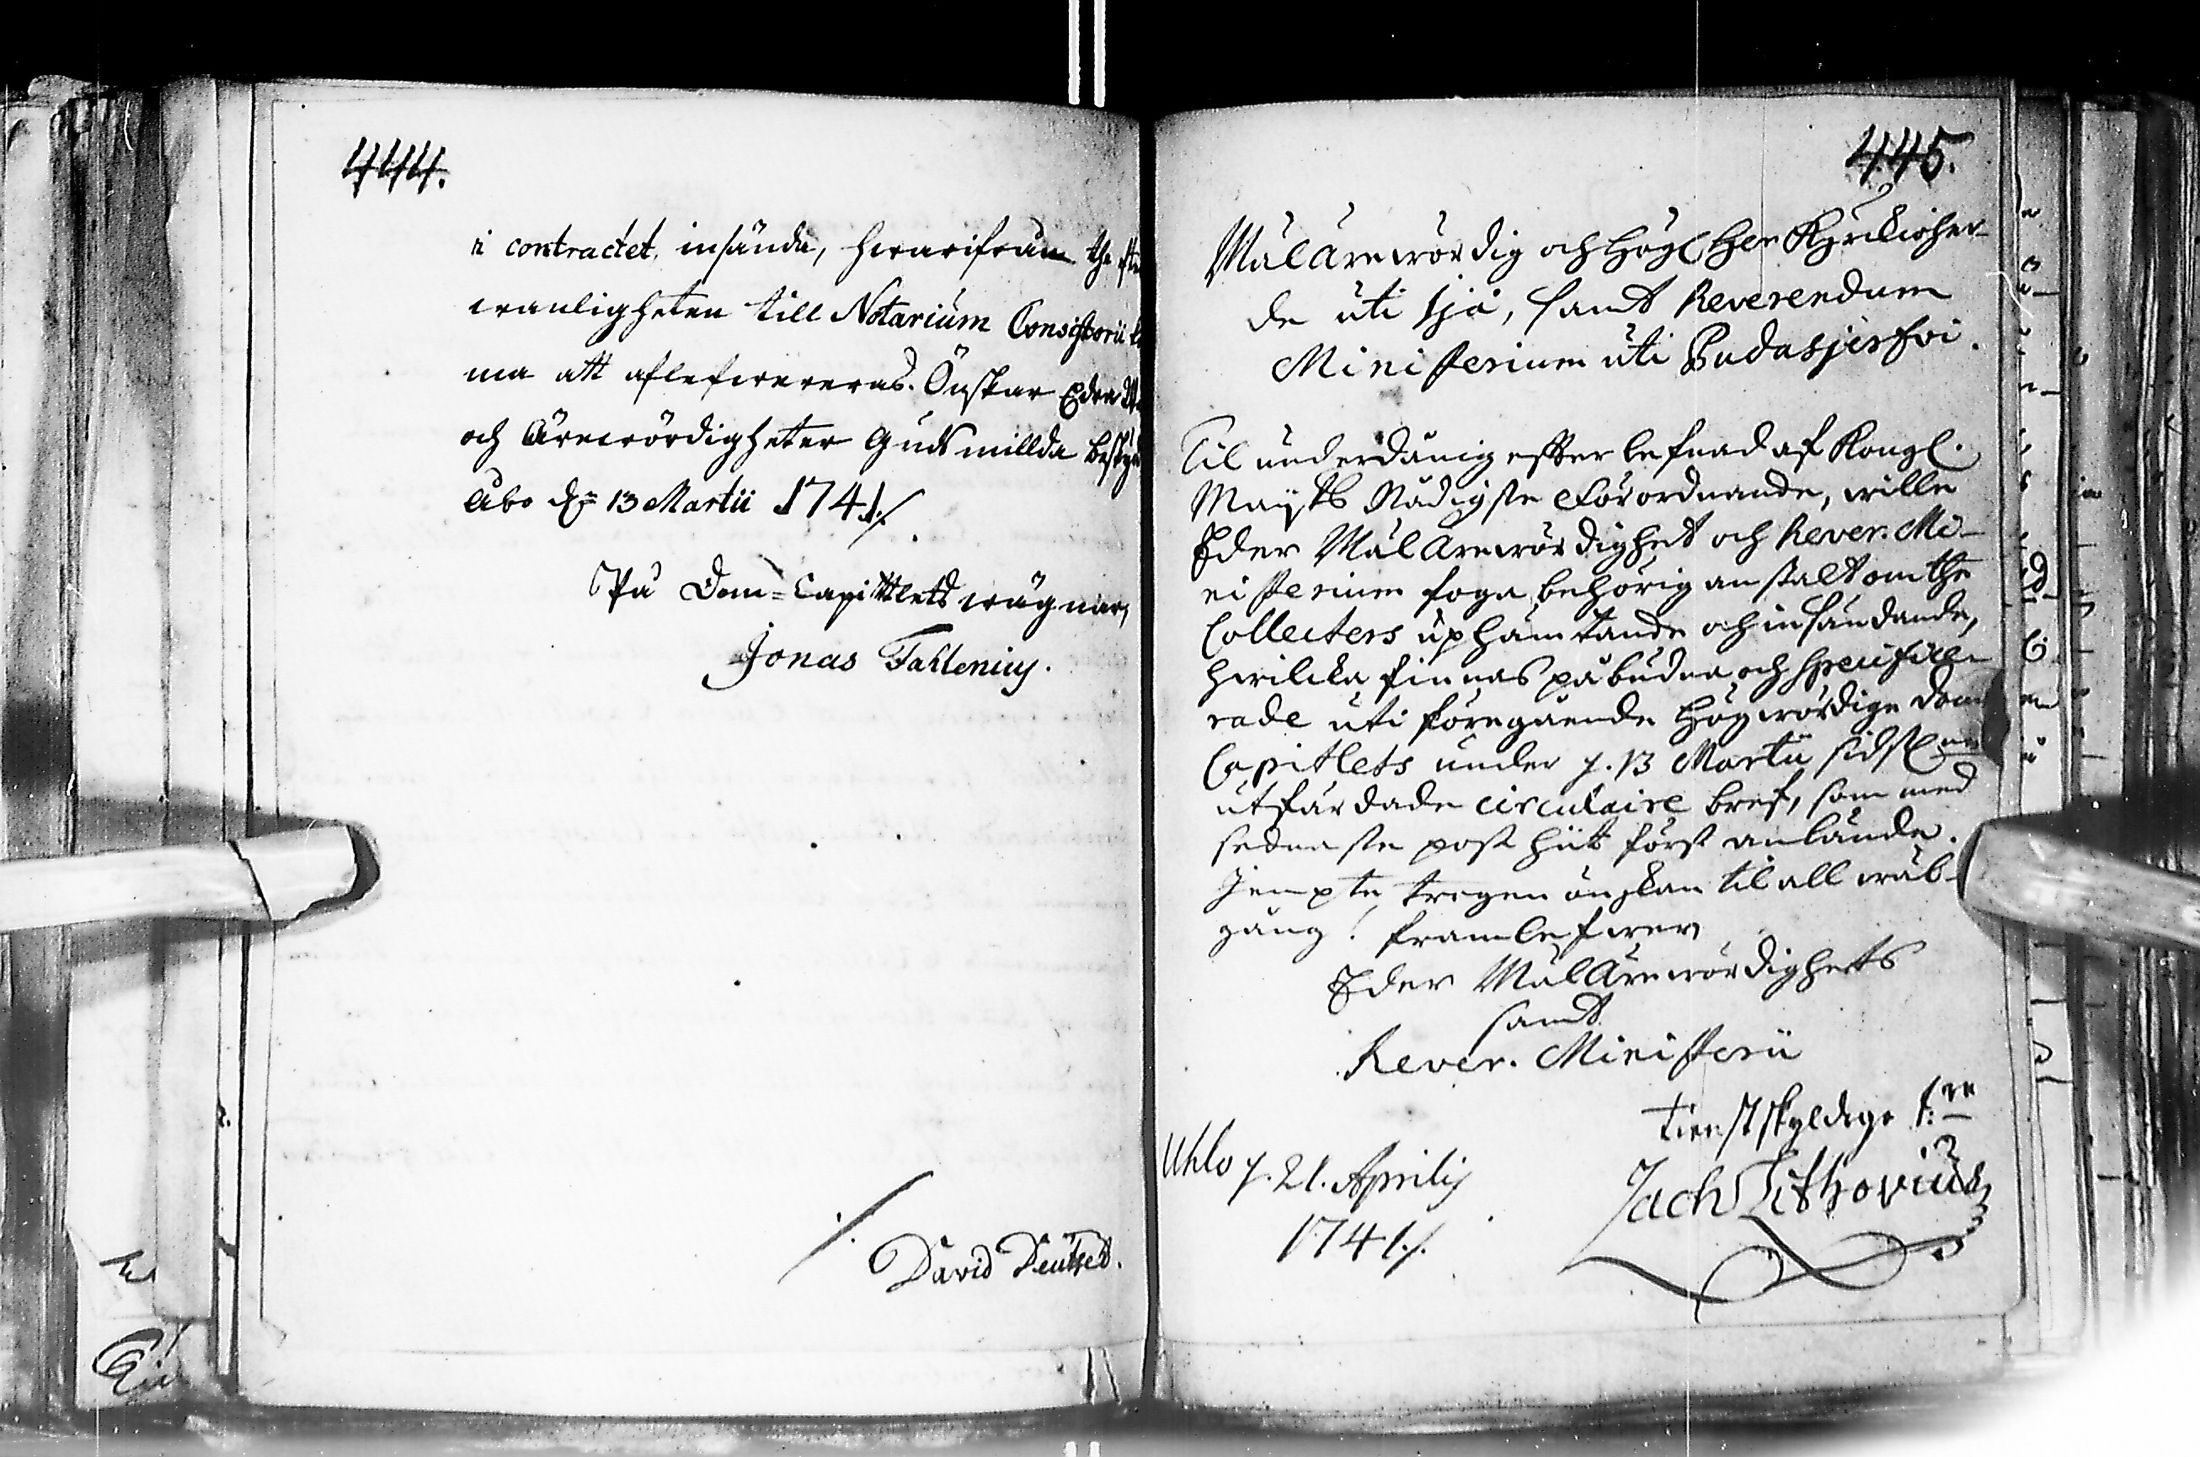 444.
i contractet insända, hwarifrån the efter
wanligheten till Notarium Consistorii
ma att aflefwereras. Önskar Eder
och Ärewördigheter Guds millda
Åbo dn 13 Martii 1741./.
På Dom=Capittlets wägnar,
Jonas Fahlenius.
./.
David Deutsch.
445.
WälÄrewördig och Högl Herr Kyrckioher-
de uti Ijå, samt Reverendum
Ministerium uti Pudasjerfwi.
Til underdånig efterlefnad af Kongl.
Mayts Nådigste Förordnande, wille
Eder WälÄrewördighet och Rever. Mi-
nisterium foga behörig anstalt om the
Collecters uphämtande och insändande,
hwilcka finnas påbudna och specifice-
rade uti föregående Högwördige Dom
Capitlets under d. 13 Martii sidstl
utfärdade circulaire bref, som med
sednaste post hiit först anlände.
Jempte trogen önskan til all wäl-
gång! framlefwer
Eder WälÄrewördighets
samt
Rever. Ministerii
tienstskyldige
Uhlo d. 21. Aprilis
1741./.
Zach Lithovius